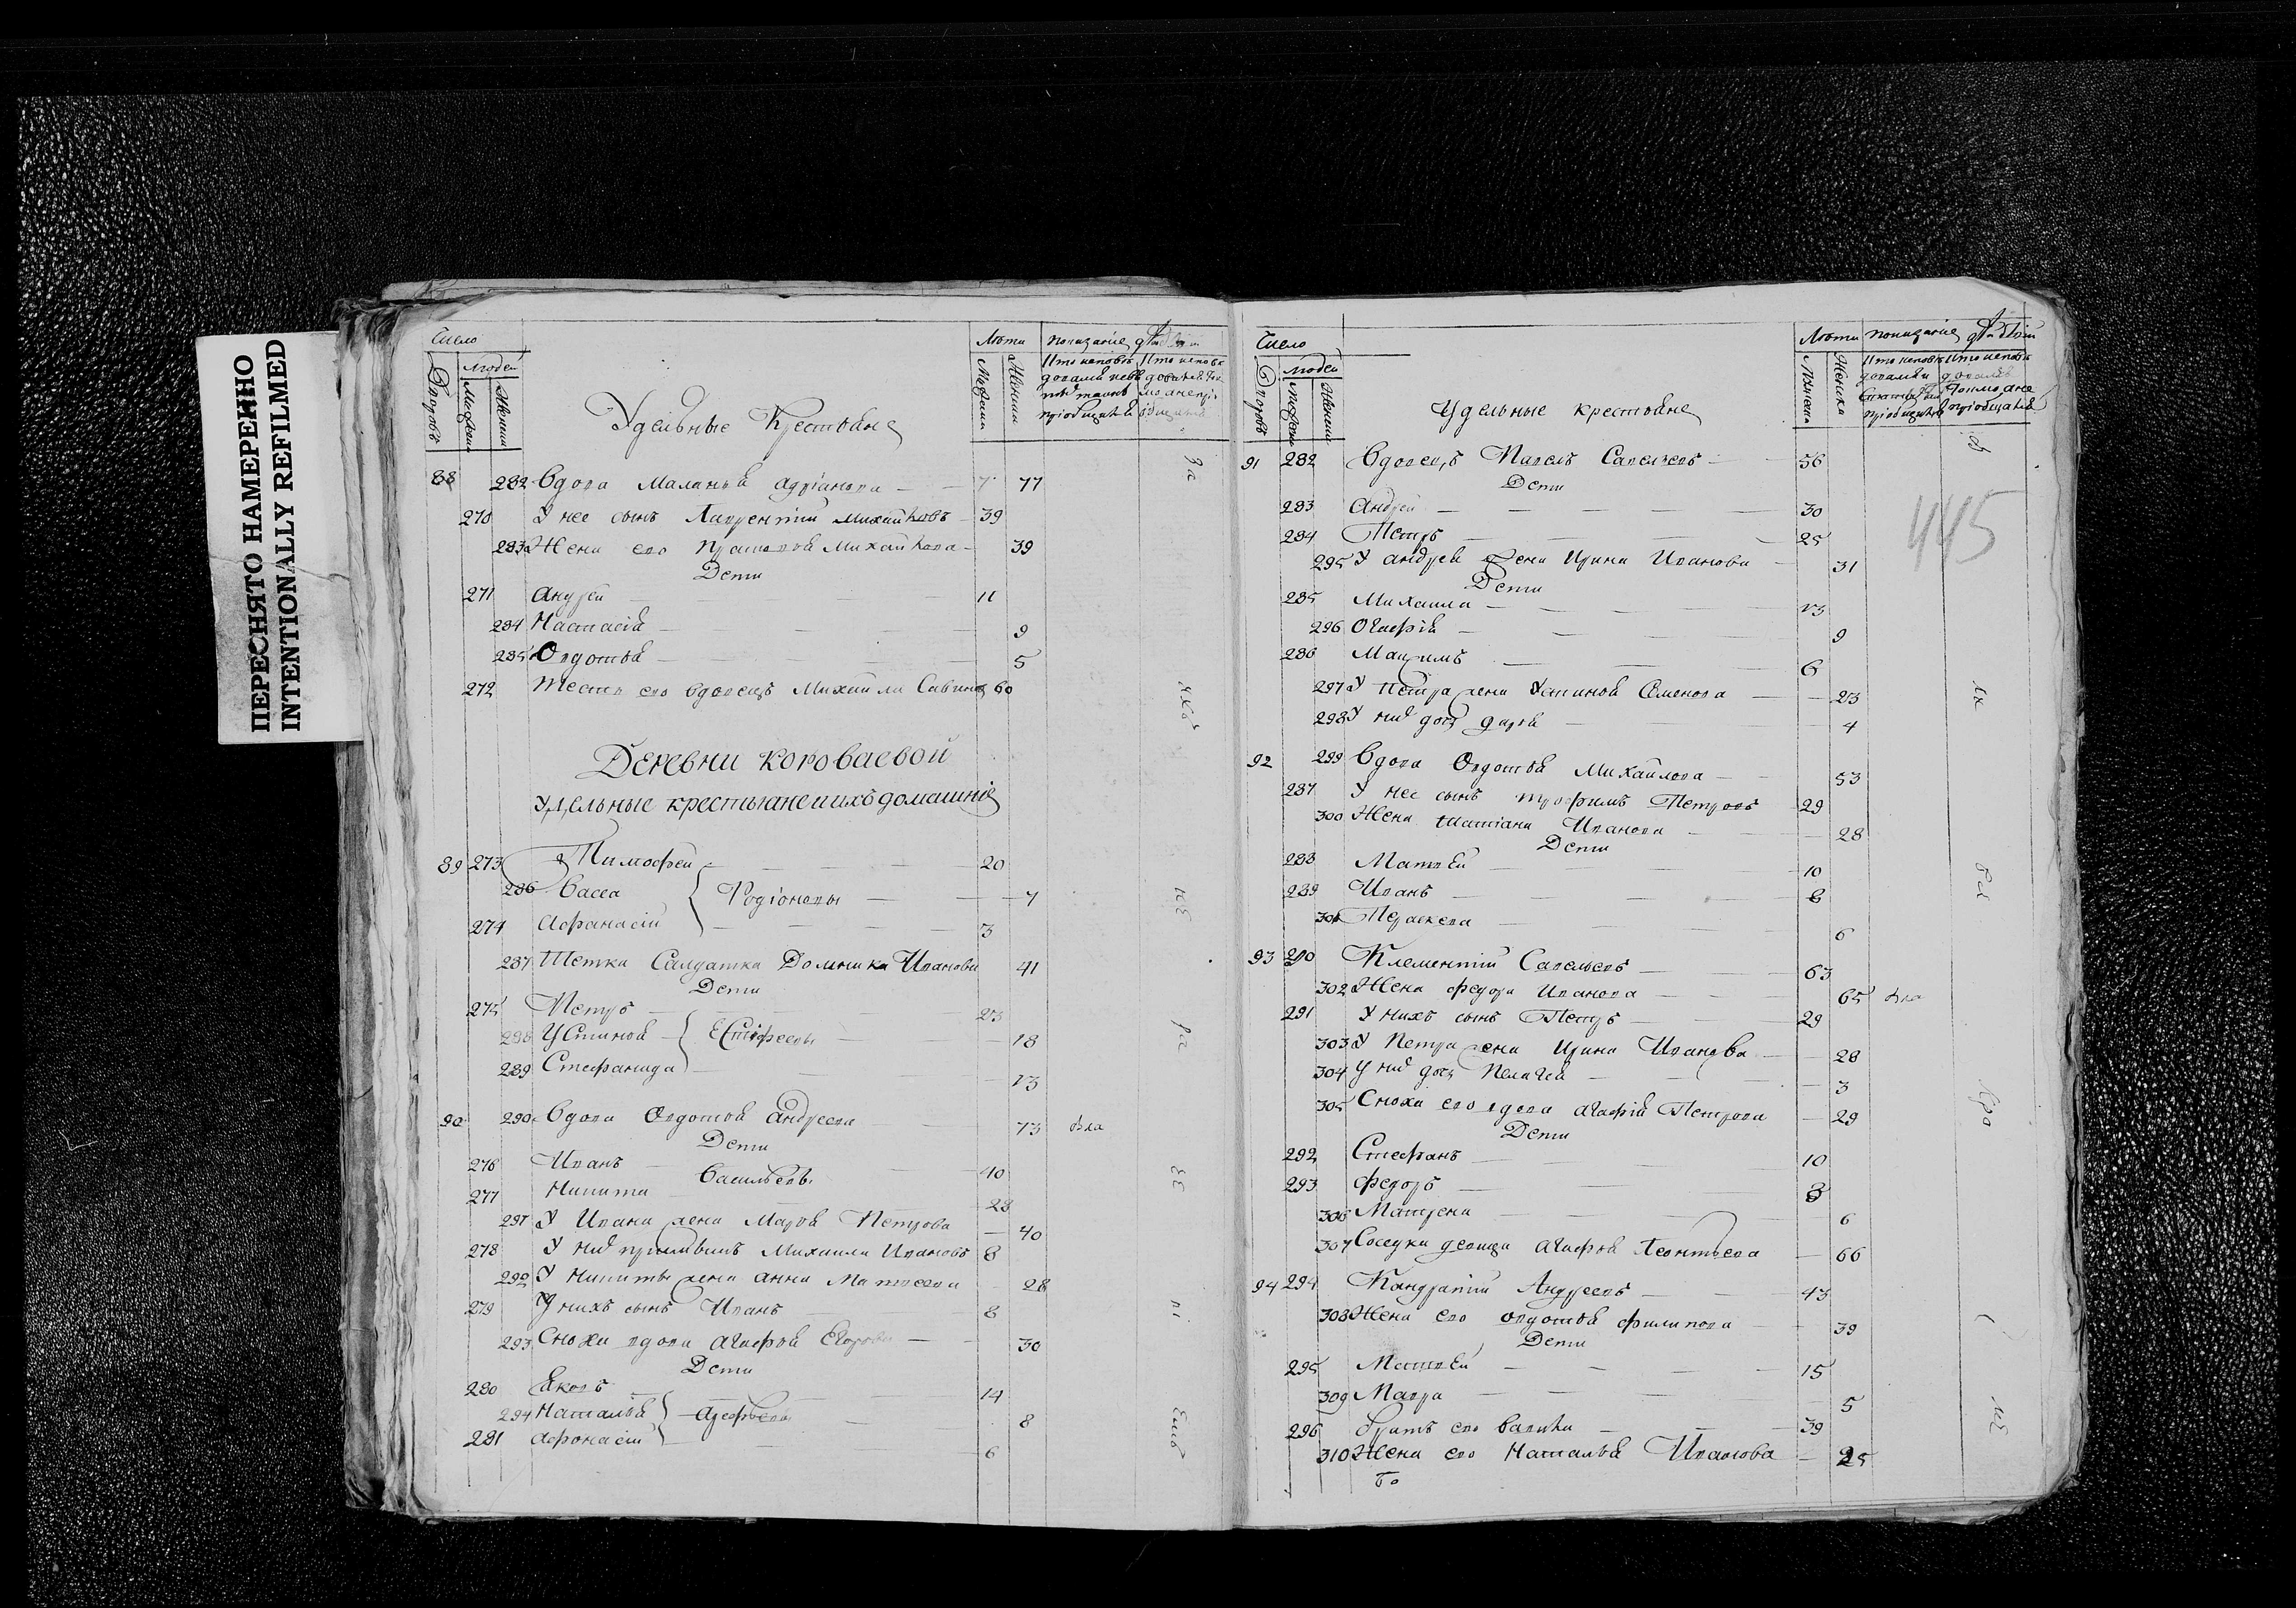 ПЕРЕСНЯТО НАМЕРЕННО
INTENTIONALLY REFILMED
Число
Людей
Дворовъ
Мужеска
Женска
Лѣта
Показаніе
Удельные Крестьяне
88 282 Вдова Маланья Адріанова 77
270 У нее сынъ Лаврентій Михайловъ 39
283 Жена его Михайлова 39
Дети
271 Андрей 11
284 Настасія 9
285 Овдотья 5
272 Тесть его вдовецъ Михайла Савинъ 60
Деревни короваевой
Удельные крестьяне и ихъ домашніе
89 273 Тимофей 20
286 Васса Родіоновы 7
274 Афанасій 3
287 Тетка Салдатка Домника Иванова 41
Дети
275 Петръ 23
288 Устинья 18
289 Стефанида 13
90 290 Вдова Овдотья Андреева 73
Дети
276 Иванъ 40
Васильевы
277 Никита 28
291 У Ивана жена Марья Петрова 40
278 У нихъ Михаила Ивановъ 8
292 У Никиты жена Анна Матвеева 28
279 У нихъ сынъ Иванъ 8
293 Сноха вдова Агафья Егорова 30
Дети
280 Яковъ 14
294 Наталья 8
281 Афонасій 6
Число
Людей
Дворовъ
Мужеска
Женска
Лѣта
Показаніе
Удельные крестьяне
445
91 282 Вдовецъ Павелъ Савельевъ 56
Дети
283 Андрей 30
284 Петръ 25
295 У Андрея жена Ирина Иванова 31
Дети
285 Михаила 13
296 Огафія 9
286 Максимъ 6
297 У Петра жена Устинья Семенова 23
298 У нихъ дочь Дарья 4
92 299 Вдова Овдотья Михайлова 53
287 У нее сынъ Трофимъ Петровъ 29
300 Жена Татіана Иванова 28
Дети
288 Матвей 10
289 Иванъ 8
301 Параскева 6
93 290 Клементій Савельевъ 63
302 Жена Федора Иванова 65
291 У нихъ сынъ Петръ 29
303 У Петра жена Ирина Иванова 28
304 У нихъ дочь Пелагея 3
305 Сноха его вдова Агафія Петрова 29
Дети
292 Стефанъ 10
293 Федоръ 8
306 Матрена 6
307 Соседка девица Агафья Леонтьева 66
94 294 Кандратій Андреевъ 43
308 Жена его Овдотья Филипова 39
Дети
295 Матвей 15
309 Мавра 5
296 Братъ его 39
310 Жена его Наталья Иванова 25